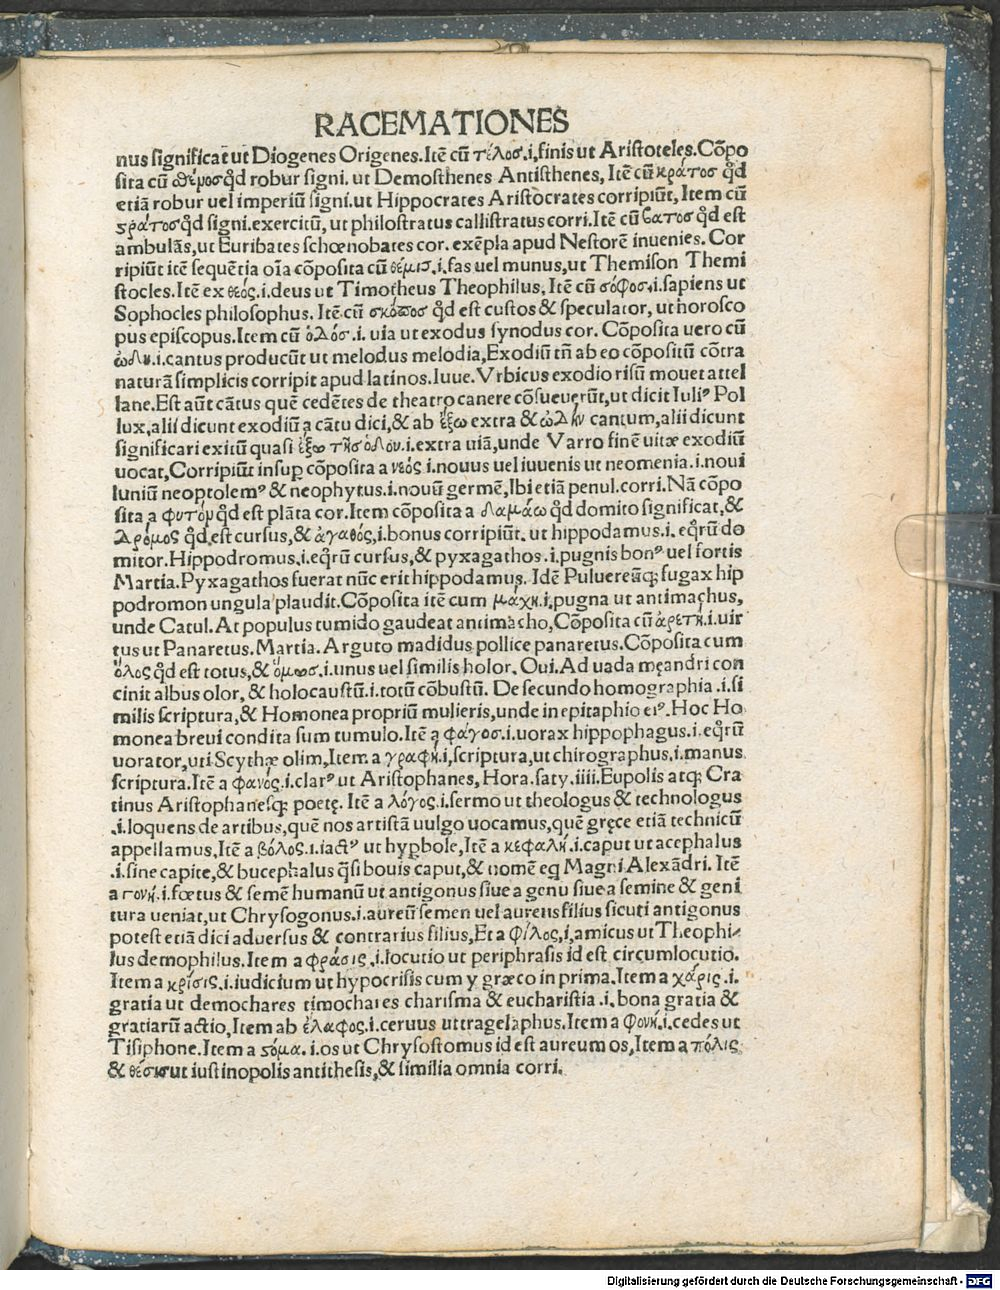 RACEMATIONES
nus significat ut Diogenes Origenes. Itē cū τέλοσ .i, finis ut Aristoteles. Cōpo
sita cū θέμοσ qđ robur signi. ut Demosthenes Antisthenes, Itē cū κράτοσ qđ
etiā robur uel imperiū signi. ut Hippocrates Aristocrates corripiūt, Item cū
ϛράτοσ qđ signi. exercitū, ut philostratus callistratus corri. Itē cū βατοσ qđ est
ambulās, ut Euribates schœnobates cor. exēpla apud Nestorē inuenies. Cor
ripiūt itē sequētia oīa cōposita cū θέμισ .i. fas uel munus, ut Themison Themi
stocles. Itē ex θεός .i. deus ut Timotheus Theophilus, Itē cū σόφοσ .i. sapiens ut
Sophocles philosophus. Itē cū σκόποσ qđ est custos & speculator, ut horosco
pus episcopus. Item cū ὁδόσ .i. uia ut exodus synodus cor. Cōposita uero cū
ὠδὴ .i. cantus producūt ut melodus melodia, Exodiū tñ ab eo cōpositū cōtra
naturā simplicis corripit apud latinos. Iuue. Vrbicus exodio risū mouet attel
lane. Est aūt cātus quē cedētes de theatro canere cōsueuerūt, ut dicit Iuliꝰ Pol
lux, alii dicunt exodiū a cātu dici, & ab ἔξω extra & ὠδὴν cantum, alii dicunt
significari exitū quasi ἔξω τῆσ ὁδου .i. extra uiā, unde Varro finē uitæ exodiū
uocat, Corripiūt insuꝑ cōposita a νεός .i. nouus uel iuuenis ut neomenia .i. noui
luniū neoptolemꝰ & neophytus .i. nouū germē, Ibi etiā penul. corri. Nā cōpo
sita a φυτόν qđ est plāta cor. Item cōposita a δαμάω qđ domito significat, &
δρόμος qđ est cursus, & ἀγαθός, .i. bonus corripiūt. ut hippodamus .i. eqꝛū do
mitor. Hippodromus .i. eqꝛū cursus, & pyxagathos .i. pugnis bonꝰ uel fortis
Martia. Pyxagathos fuerat nūc erit hippodamus. Idē Puluereāqꝫ fugax hip
podromon ungula plaudit. Cōposita itē cum μάχη .i, pugna ut antimachus,
unde Catul. At populus tumido gaudeat antimacho, Cōposita cū ἀρετή .i. uir
tus ut Panaretus. Martia. Arguto madidus pollice panaretus. Cōposita cum
ὅλος qđ est totus, & ὅμωσ .i. unus uel similis holor. Oui. Ad uada męandri con
cinit albus olor, & holocaustū .i. totū cōbustū. De secundo homographia .i. si
milis scriptura, & Homonea propriū mulieris, unde in epitaphio eiꝰ. Hoc Ho
monea breui condita sum tumulo. Itē a φάγοσ .i. uorax hippophagus .i. eqꝛū
uorator, uti Scythæ olim, Item a γραφή .i, scriptura, ut chirographus, .i. manus
scriptura. Itē a φανός .i. clarꝰ ut Aristophanes, Hora. saty. iiii. Eupolis atqꝫ Cra
tinus Aristophanesqꝫ poetę. Itē a λόγος .i. sermo ut theologus & technologus
.i. loquens de artibus, quē nos artistā uulgo uocamus, quē gręce etiā technicū
appellamus, Itē a βόλος .ı. iactꝰ ut hyꝑbole, Itē a κεφαλή .i. caput ut acephalus
.i. sine capite, & bucephalus q̄si bouis caput, & nomē eq Magni Alexādri. Itē
a γονή .i. fœtus & semē humanū ut antigonus siue a genu siue a semine & geni
tura ueniat, ut Chrysogonus .i. aureū semen uel aurens filius sicuti antigonus
potest etiā dici aduersus & contrarius filius, Et a φίλος, i, amicus ut Theophi⸗
lus demophilus. Item a φράσις .i. locutio ut periphrasis id est circumlocutio.
Item a κρίσις .i. iudicium ut hypocrisis cum y græco in prima. Item a χάρις .i.
gratia ut demochares timochares charisma & eucharistia .i. bona gratia &
gratiarū actio, Item ab ἐλαφος .i. ceruus ut tragelaphus. Item a φονή .i. cedes ut
Tisiphone. Item a ϛόμα .i. os ut Chrysostomus id est aureum os, Item a πόλις
& θέσισ ut iustinopolis antithesis, & similia omnia corri.
Digitalisierung gefördert durch die Deutsche Forschungsgemeinschaft - DFG